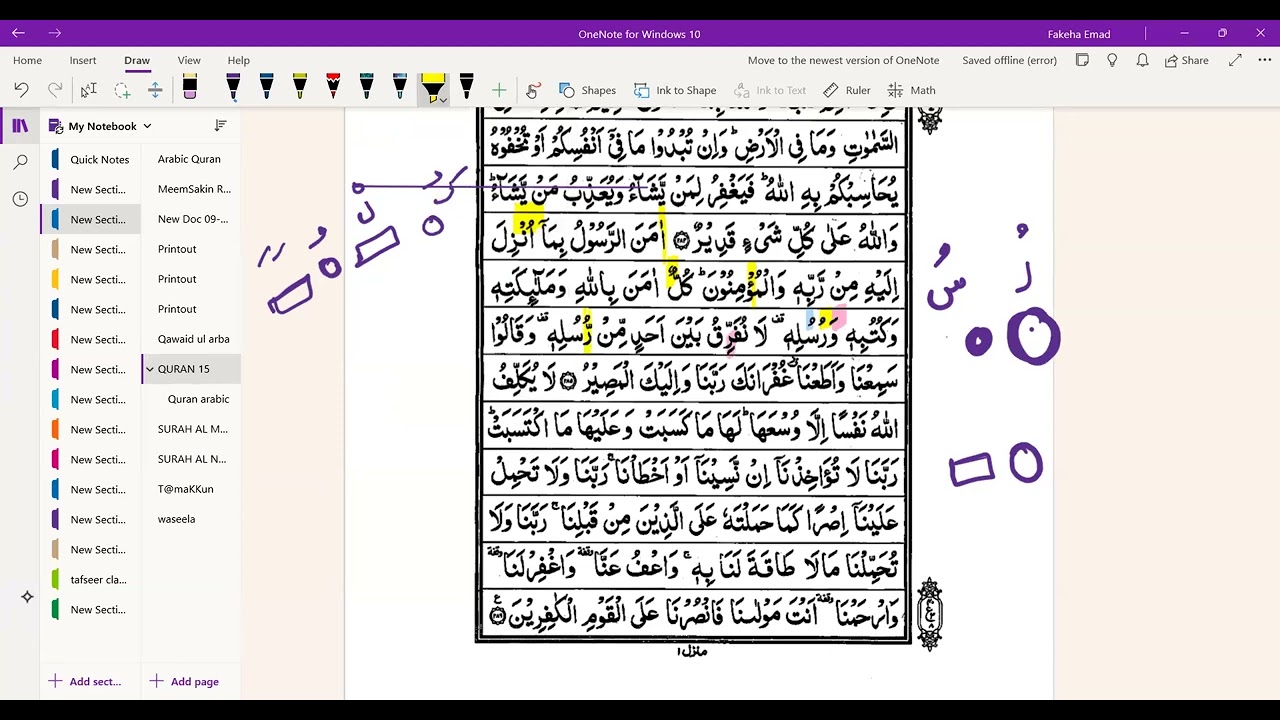 OneNote for Windows 10
Fakeha Emad
Home Insert Draw View Help
Move to the newest version of OneNote Saved offline (error) Share
Shapes Ink to Shape Ink to Text Ruler Math
My Notebook
Quick Notes Arabic Quran
New Secti... MeemSakin R...
New Secti... New Doc 09-...
New Secti... Printout
New Secti... Printout
New Secti... Printout
New Secti... Qawaid ul arba
New Secti... QURAN 15
New Secti... Quran arabic
New Secti... SURAH AL M...
New Secti... SURAH AL N...
New Secti... T@maKKun
New Secti... waseela
New Secti...
tafseer cla...
New Secti...
Add sect... Add page
السَّمٰوٰتِ وَمَا فِی الْاَرْضِ ؕ وَاِنْ تُبْدُوْا مَا فِیْۤ اَنْفُسِكُمْ اَوْ تُخْفُوْهُ
یُحَاسِبْكُمْ بِهِ اللّٰهُ ؕ فَیَغْفِرُ لِمَنْ یَّشَآءُ وَیُعَذِّبُ مَنْ یَّشَآءُ ؕ
وَاللّٰهُ عَلٰی كُلِّ شَیْءٍ قَدِیْرٌ ﴿۲۸۴﴾ اٰمَنَ الرَّسُوْلُ بِمَاۤ اُنْزِلَ
اِلَیْهِ مِنْ رَّبِّهٖ وَالْمُؤْمِنُوْنَ ؕ كُلٌّ اٰمَنَ بِاللّٰهِ وَمَلٰٓئِكَتِهٖ
وَكُتُبِهٖ وَرُسُلِهٖ ۟ لَا نُفَرِّقُ بَیْنَ اَحَدٍ مِّنْ رُّسُلِهٖ ۟ وَقَالُوْا
سَمِعْنَا وَاَطَعْنَا ؗ غُفْرَانَكَ رَبَّنَا وَاِلَیْكَ الْمَصِیْرُ ﴿۲۸۵﴾ لَا یُكَلِّفُ
اللّٰهُ نَفْسًا اِلَّا وُسْعَهَا ؕ لَهَا مَا كَسَبَتْ وَعَلَیْهَا مَا اكْتَسَبَتْ ؕ
رَبَّنَا لَا تُؤَاخِذْنَاۤ اِنْ نَّسِیْنَاۤ اَوْ اَخْطَاْنَا ۚ رَبَّنَا وَلَا تَحْمِلْ
عَلَیْنَاۤ اِصْرًا كَمَا حَمَلْتَهٗ عَلَی الَّذِیْنَ مِنْ قَبْلِنَا ۚ رَبَّنَا وَلَا
تُحَمِّلْنَا مَا لَا طَاقَةَ لَنَا بِهٖ ۚ وَاعْفُ عَنَّا وقفة وَاغْفِرْ لَنَا وقفة
وَارْحَمْنَا وقفة اَنْتَ مَوْلٰىنَا فَانْصُرْنَا عَلَی الْقَوْمِ الْكٰفِرِیْنَ ﴿۲۸۶﴾
منزل ۱